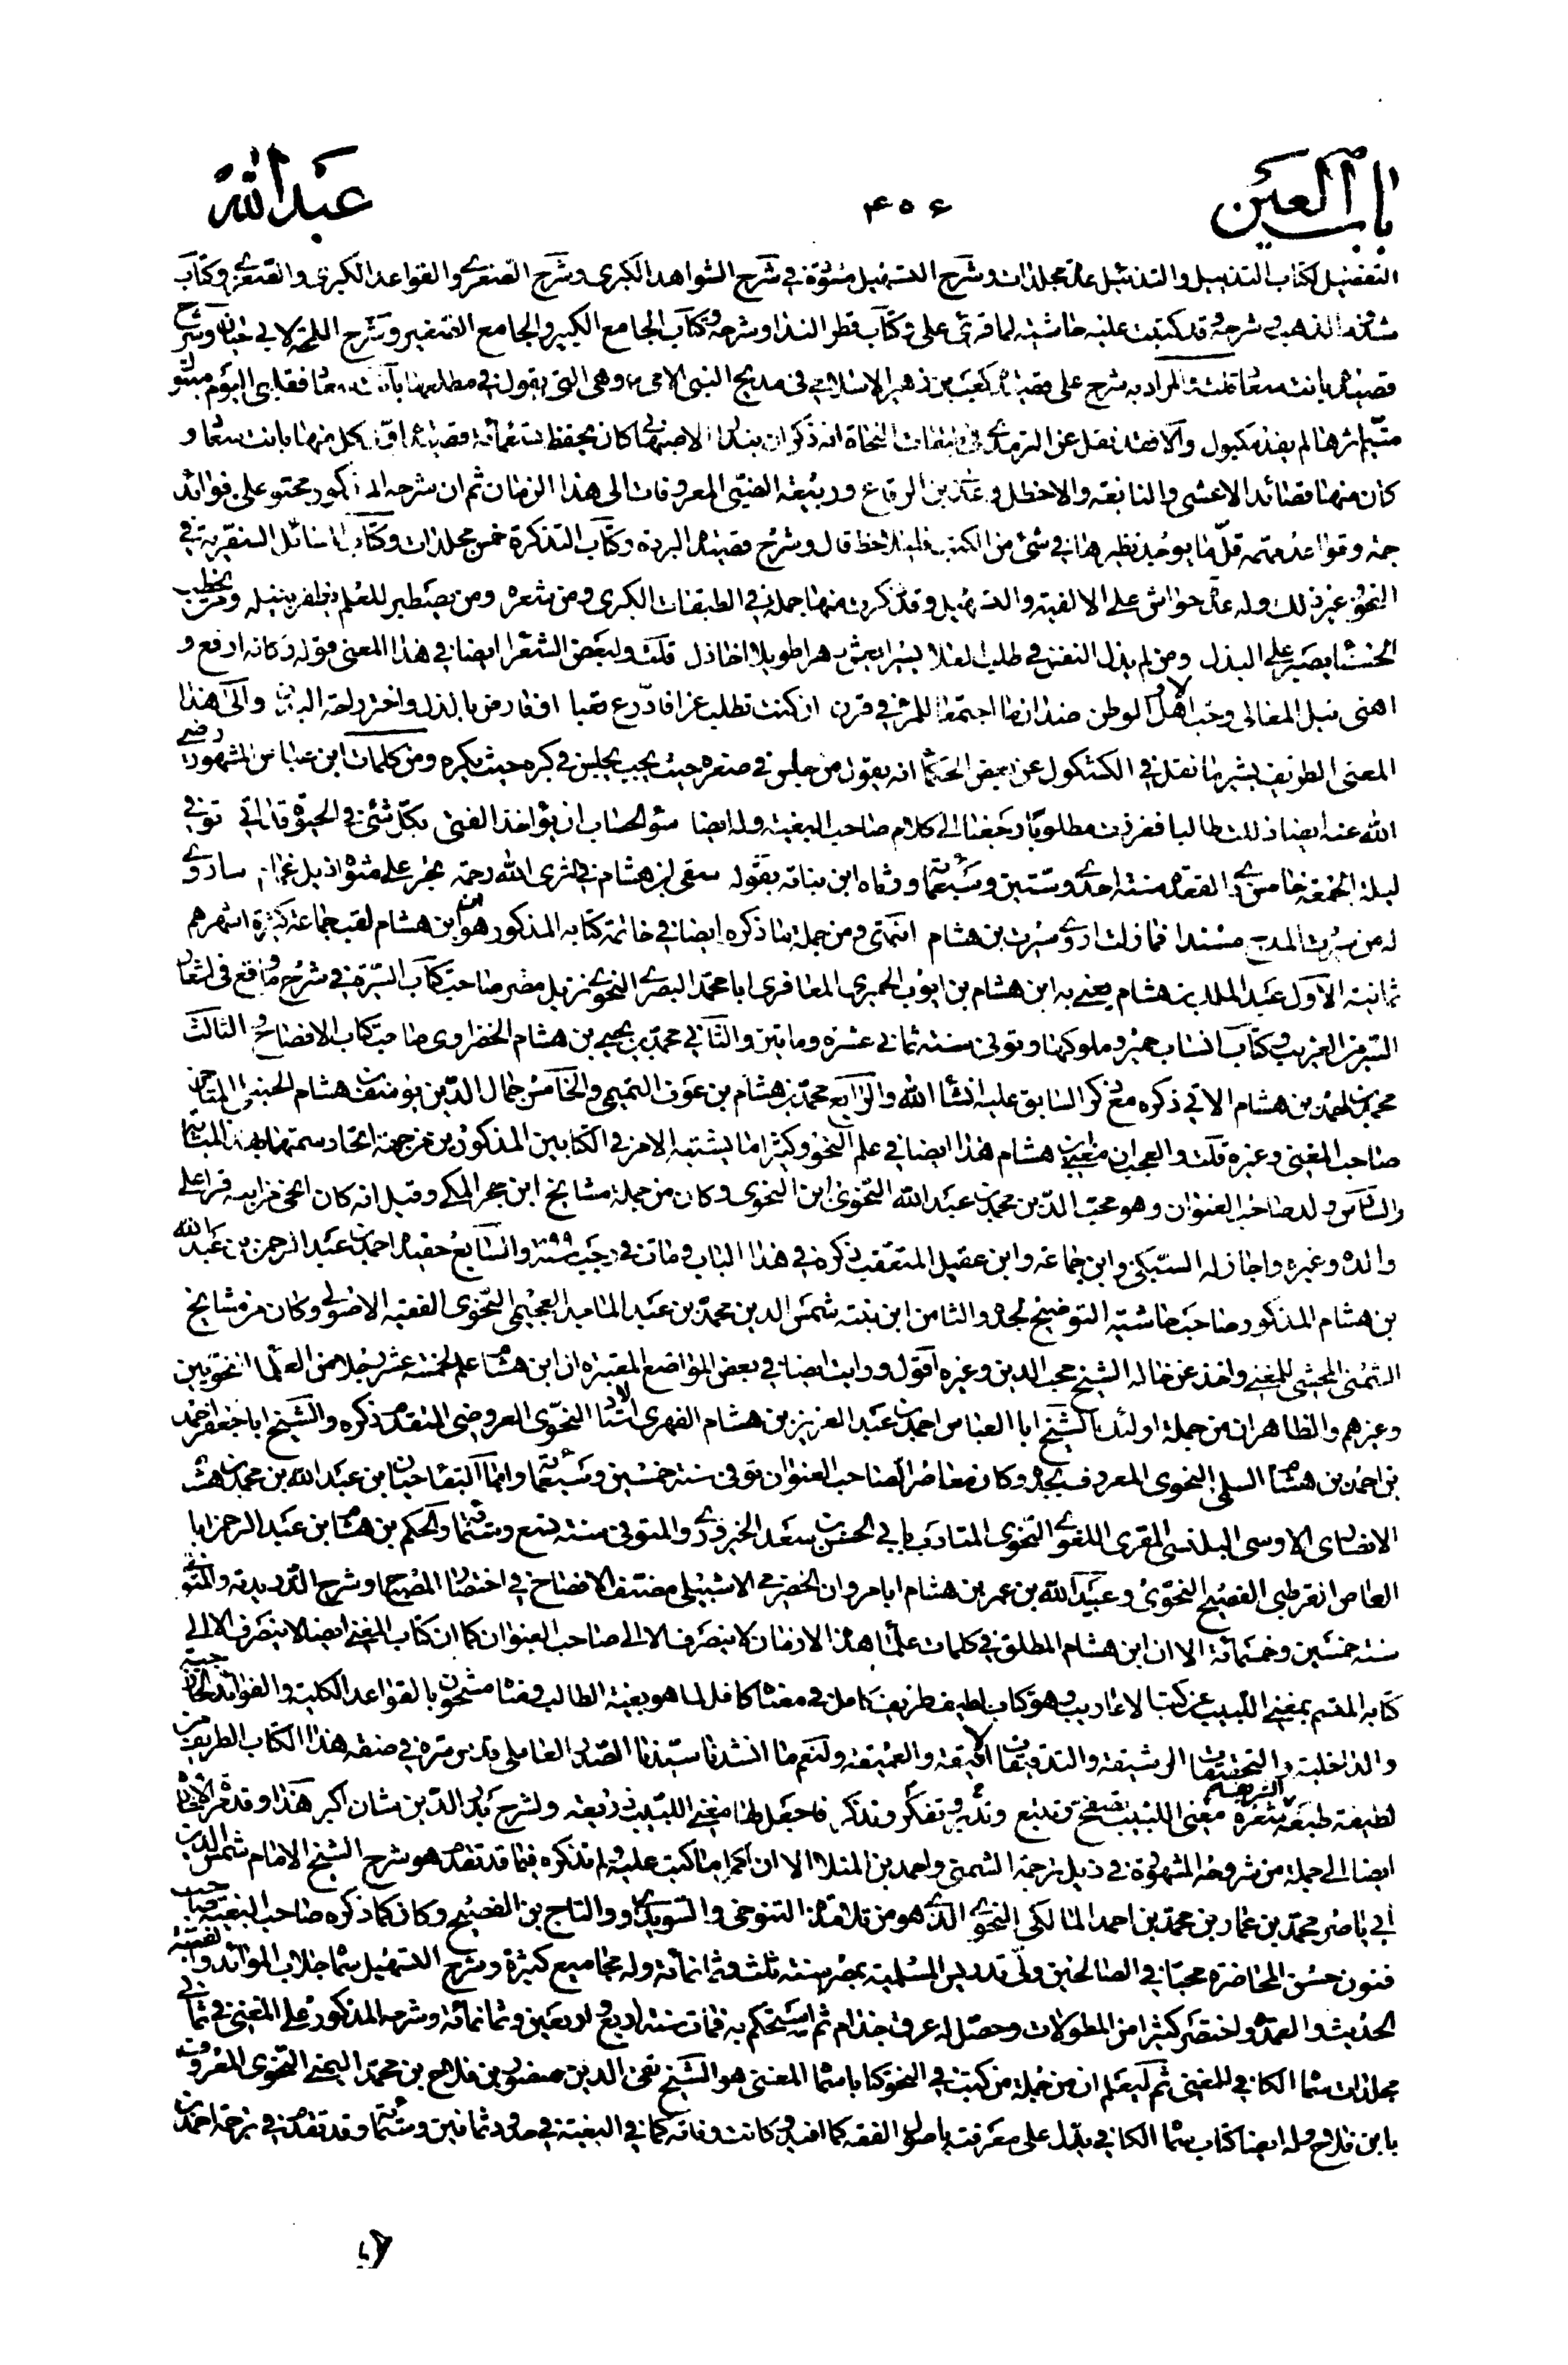 باب العين
۴۵۶
عبد الله
التفضيل لكتاب التذييل والتكميل عدة مجلدات وشرح التسهيل مسودة في شرح الشواهد الكبرى وشرح الصغرى والقواعد الكبرى والصغرى وكتاب
شذور الذهب وشرحه وقد كتبت عليه حاشية لما قرئ علي وكتاب قطر الندا وشرحه وكتاب الجامع الكبير والجامع الصغير وشرح اللمحة لابي حيان وشرح
قصيدة بانت سعاد قلت المراد به شرح على قصيدة كعب بن زهير الاسلامي في مديح النبي الامي وهي التي يقول في مطلعها بانت سعاد فقلبي اليوم متبول
متيم اثرها لم يفد مكبول والا فقد نقل عن الترمذي في طبقات النحاة انه ذكر ان بندار الاصبهاني كان يحفظ تسعمائة قصيدة اول كل منها بانت سعاد و
كان منها قصائد الاعشى والنابغة والاخطل وعدي بن الرقاع وربيعة الضبي المعروفات الى هذا الزمان ثم ان شرحه المذكور محتو على فوائد
جمة وقواعد مهمة قل ما يوجد نظيرها في شئ من الكتب فليلاحظ قال وشرح قصيدة البردة وكتاب التذكرة خمس مجلدات وكتاب المسائل السفرية في
النحو وغير ذلك وله عدة حواش على الالفية والتسهيل وقد ذكرت منها جملة في الطبقات الكبرى ومن شعره ومن يصطبر للعلم يظفر بنيله ومن يخطب
الحسناء يصبر على البذل ومن لم يذل النفس في طلب العلا يسيرا يعش دهرا طويلا اخا ذل قلت ولبعض الشعراء ايضا في هذا المعنى قوله وكانه ارفع و
اهنى نيل المعالى وحب الاهل والوطن ضدان ما اجتمعا للمرء في قرن ان كنت تطلب عزا فادرع تعبا او فارض بالذل واختر راحة البدن والى هذا
المعنى الطريف يشير ما نقل في الكشكول عن بعض الحكماء انه يقول من جلس في صغره حيث يحب يجلس في كبره حيث يكره ومن كلمات ابن عباس المشهورة رضي
الله عنه ايضا ذللت طالبا فعززت مطلوبا رجعنا الى كلام صاحب البغية وله ايضا سوء الحساب ان يؤاخذ الفتى بكل شئ في الحيوة قد اتى توفي
ليلة الجمعة خامس ذي القعدة سنة احدى وستين وسبعمائة ورثاه ابن نباتة بقوله سقى ابن هشام في الثرى الله رحمة يجر على مثواه ذيل غمام سأروي
له من سيرة المدح مسندا فما زلت اروي سيرة بن هشام انتهى ومن جملة ما ذكره ايضا في خاتمة كتابه المذكور هو ان ابن هشام لقب جماعة كثيرة اشهرهم
ثمانية الاول عبد الملك بن هشام يعني به ابن هشام بن ايوب الحميري المعافري ابا محمد البصري النحوي نزيل مصر صاحب كتاب السيرة في شرح ما وقع في اشعار
السير من الغريب وكتاب انساب حمير وملوكها وتوفي سنة ثماني عشرة ومايتين والثاني محمد بن يحيى بن هشام الخضراوي صاحب كتاب الافصاح والثالث
محمد بن احمد بن هشام الاتي ذكره مع ذكر السابق عليه انشاء الله والرابع محمد بن هشام بن عوف التميمي والخامس جمال الدين بن يوسف بن هشام الحنبلي المتاخر
صاحب المغني وغيره قلت والعجب ان هشام هذا ايضا في علم النحو وكثيرا ما يشتبه الامر في الكتابين المذكورين من جهة اتحاد سمتهما بهذه المناسبة
والسادس ولد صاحب العنوان وهو محب الدين محمد بن عبد الله النحوي ابن النحوي وكان من جملة مشايخ ابن حجر المكي وقيل انه كان انحى من ابيه قرا على
والده وغيره واجاز له السبكي وابن جماعة وابن عقيل المتعقب ذكره في هذا الباب ومات في رجب سنة ۷۹۹ والسابع حفيده احمد بن عبد الرحمن بن عبد الله
بن هشام المذكور صاحب حاشية التوضيح لجده والثامن ابن بنته شمس الدين محمد بن عبد الماجد العجيمي النحوي الفقيه الاصولي وكان من مشايخ
الشمني المحشي للمغني واخذ عن خاله الشيخ محب الدين وغيره اقول ورايت ايضا في بعض المواضع المعتبرة ان ابن هشام علم لخمسة عشر رجلا من العلماء النحويين
وغيرهم والظاهر ان من جملة اولئك الشيخ ابا العباس احمد بن عبد العزيز بن هشام الفهري النحوي العروضي المتقدم ذكره والشيخ ابا جعفر احمد
بن احمد بن هشام السلمي النحوي المعروف بجده وكان معاصرا لصاحب العنوان توفي سنة خمسين وسبعمائة وابن عبد الله بن محمد بن هشام
الانصاري الاوسي البلنسي المقري اللغوي النحوي المتادب بابي الحسن بن سعد الخير والمتوفى سنة تسع وستمائة والحكم بن هشام بن عبد الرحمن ابا
العاص القرطبي الفصيح النحوي وعبيد الله بن عمر بن هشام ابا مروان الحضرمي الاشبيلي مصنف الافصاح في اختصار المصباح وشرح الدريدية والمتوفى
سنة خمسين وخمسمائة الا ان ابن هشام المطلق في كلمات علماء هذه الازمان لا ينصرف الا الى صاحب العنوان كما ان كتاب المغني ايضا لا ينصرف الا الى
كتابه المتسم بمغني اللبيب عن كتب الاعاريب وهو كتاب لطيف طريف كامل في معناه كافل لما هو بغية الطالب ومناه مشحون بالقواعد الكلية والفوائد الخارجية
والداخلية والتحقيقات الرشيقة والتدقيقات الانيقة والعميقة ولنعم ما انشد سيدنا الصدر العاملي قدس سره في صفة هذا الكتاب الطريف من
لطيفة طبعه الشريف مغني اللبيب تصفح وتتبع وتدبر وتفكر وتذكر فاجعلها مغني اللبيب ذريعة ولشرح بدر الدين شان اكبر هذا وقد مر الاشارة
ايضا الى جملة من شروحه المشهورة في ذيل ترجمة الشمني واحمد بن الملا الا ان اكبر ما كتب عليه ولم نذكره فيما قد تقدم هو شرح الشيخ الامام شمس الدين
ابي ياسر محمد بن عمار بن محمد بن احمد المالكي النحوي الذي هو من تلامذة التنوخي والسويداوي والتاج بن الفصيح وكان كما ذكره صاحب البغية صاحب
فنون حسن المحاضرة محبا في الصالحين ولي تدريس المسلمية بمصر سنة ثلث وثمانمائة وله مجاميع كثيرة وشرح التسهيل سماه جلاب الموائد والفية
الحديث والعمدة واختصر كثيرا من المطولات وحصل له عرق جذام ثم استحكم به فمات سنة اربع واربعين وثمانمائة وشرحه المذكور على المغني في ثماني
مجلدات سماه الكافي المغني ثم ليعلم ان من جملة من كتب في النحو كتابا سماه المغني هو الشيخ تقي الدين منصور بن فلاح بن محمد اليمني النحوي المعروف
بابن فلاح وله ايضا كتاب سماه الكافي يدل على معرفته باصول الفقه كما افيد وكانت وفاته كما في البغية في حدود ثمانين وستمائة وقد تقدم في ترجمة احمد بن